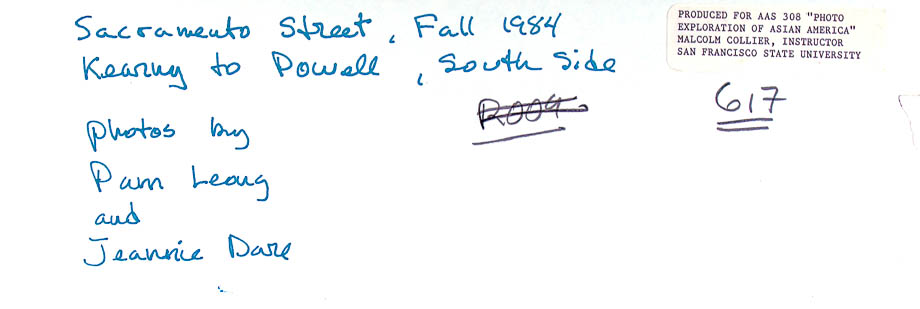 Sacramento Street, Fall 1984
Kearny to Powell, South Side
photos by
Pam Leong
and
Jeannie Dare
R004
617
PRODUCED FOR AAS 308 "PHOTO
EXPLORATION OF ASIAN AMERICA"
MALCOLM COLLIER, INSTRUCTOR
SAN FRANCISCO STATE UNIVERSITY